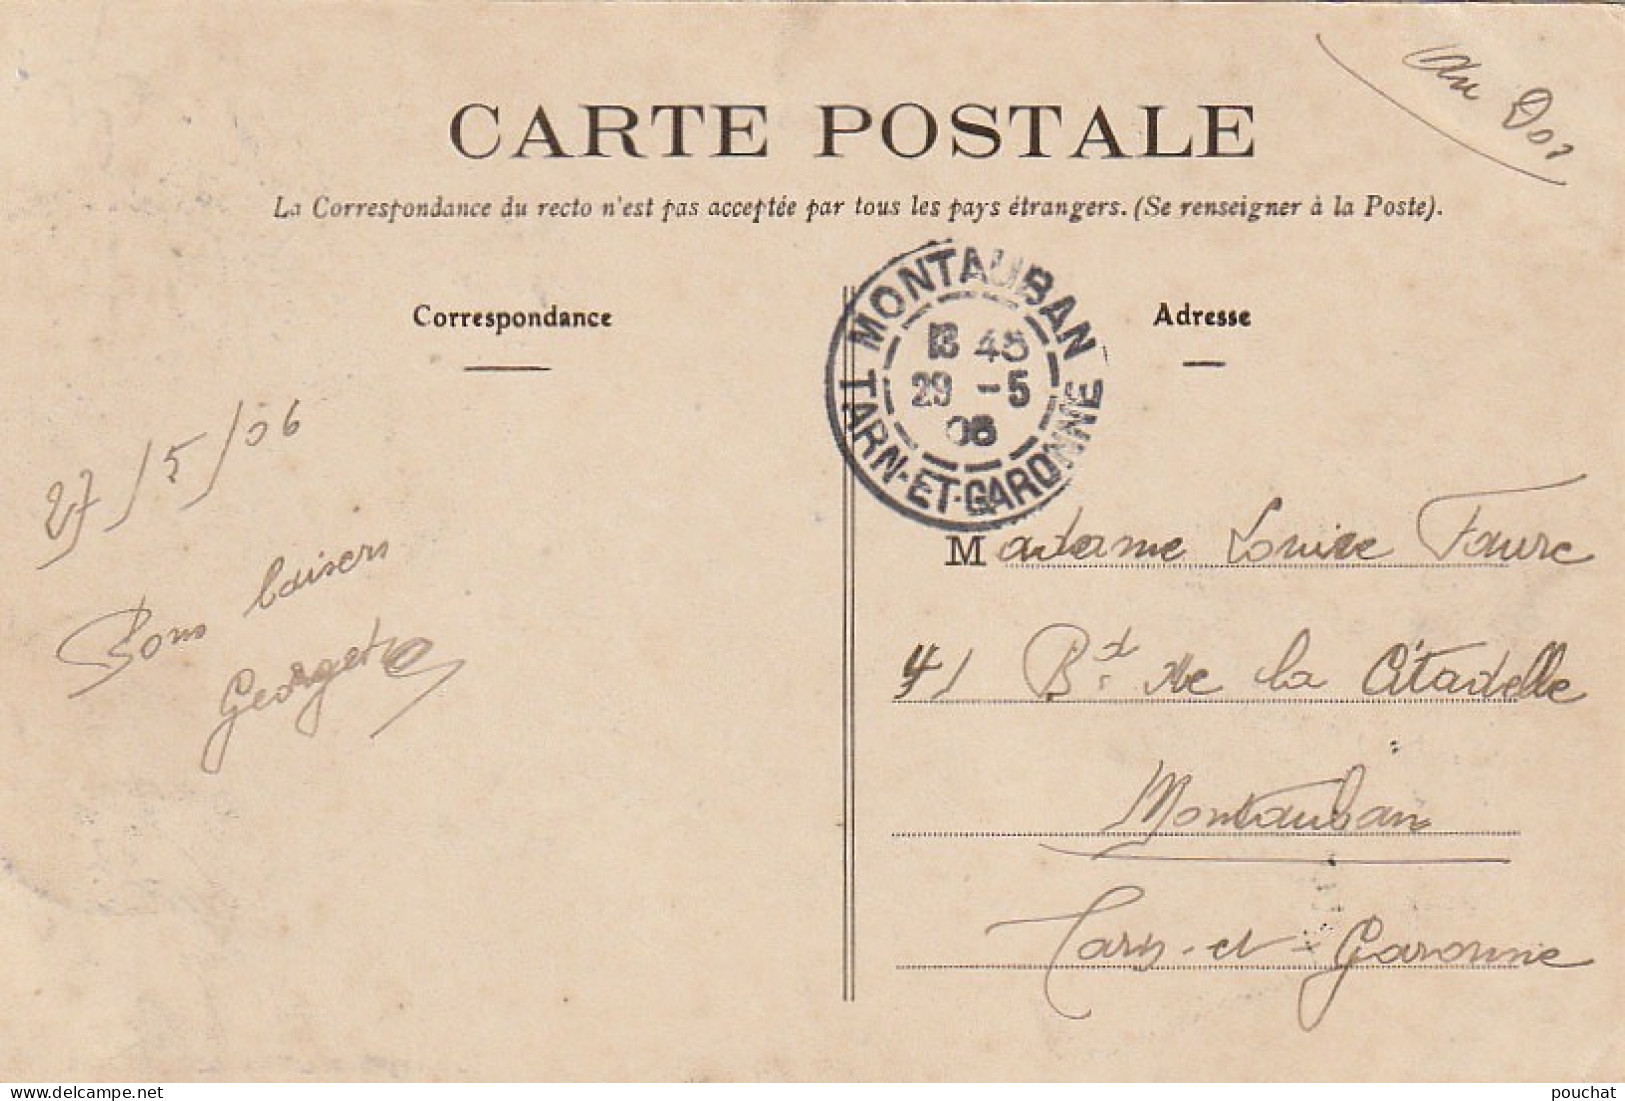 au Dos
CARTE POSTALE
La Correspondance du recto n'est pas acceptée par tous les pays étrangers. (Se renseigner à la Poste).
Correspondance
27/5/06
Bons baisers
Georgette
MONTAUBAN
45
29 -5
06
TARN-ET-GARONNE
Adresse
Madame Louise Faure
41 Bd. de la Citadelle
Montauban
Tarn-et-Garonne
pouchat